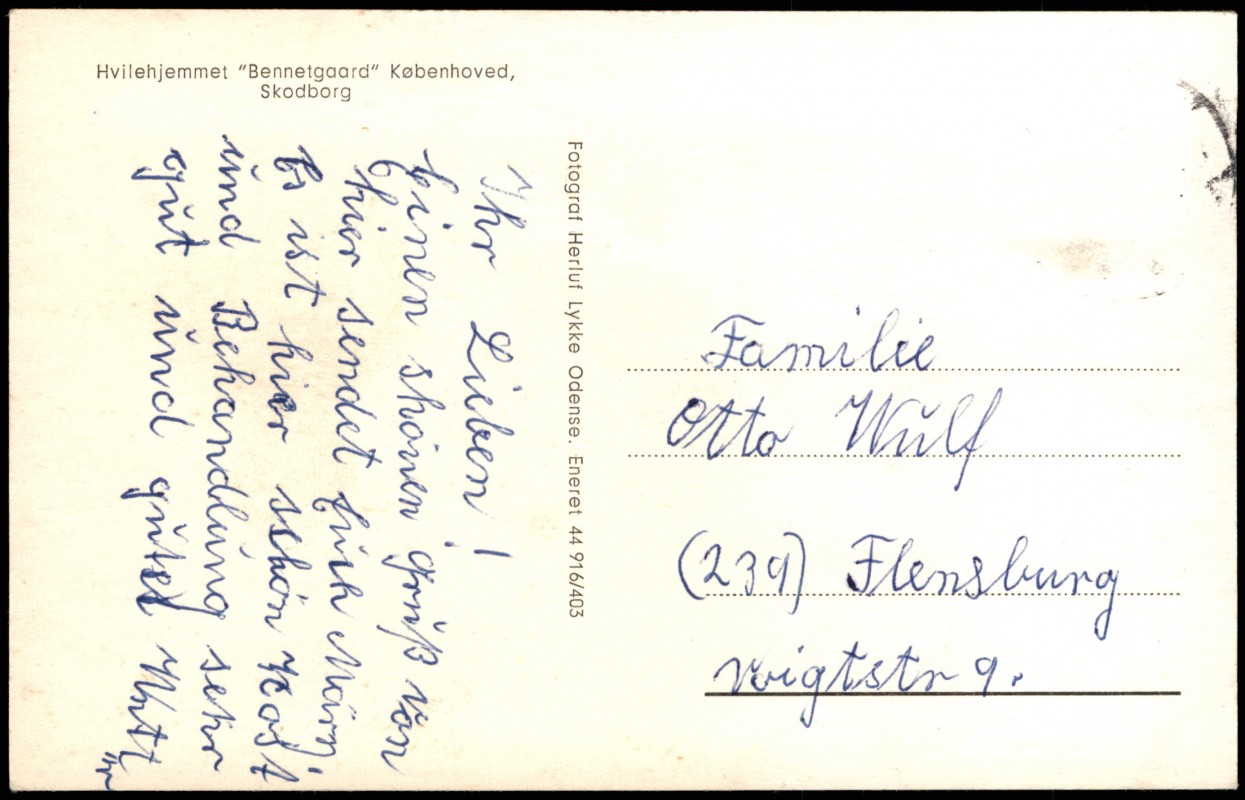 Hvilehjemmet "Bennetgaard" Københoved,
Skodborg
Ihr Lieben!
Einen shönen gruß von
hier sendet Euch
Es ist hier schön Kost
und Behandlung sehr
gut und gutes
Fotograf Herluf Lykke Odense. Eneret 44 916/403
Familie
Otto Wulf
(239) Flensburg
Voigtstr 9.